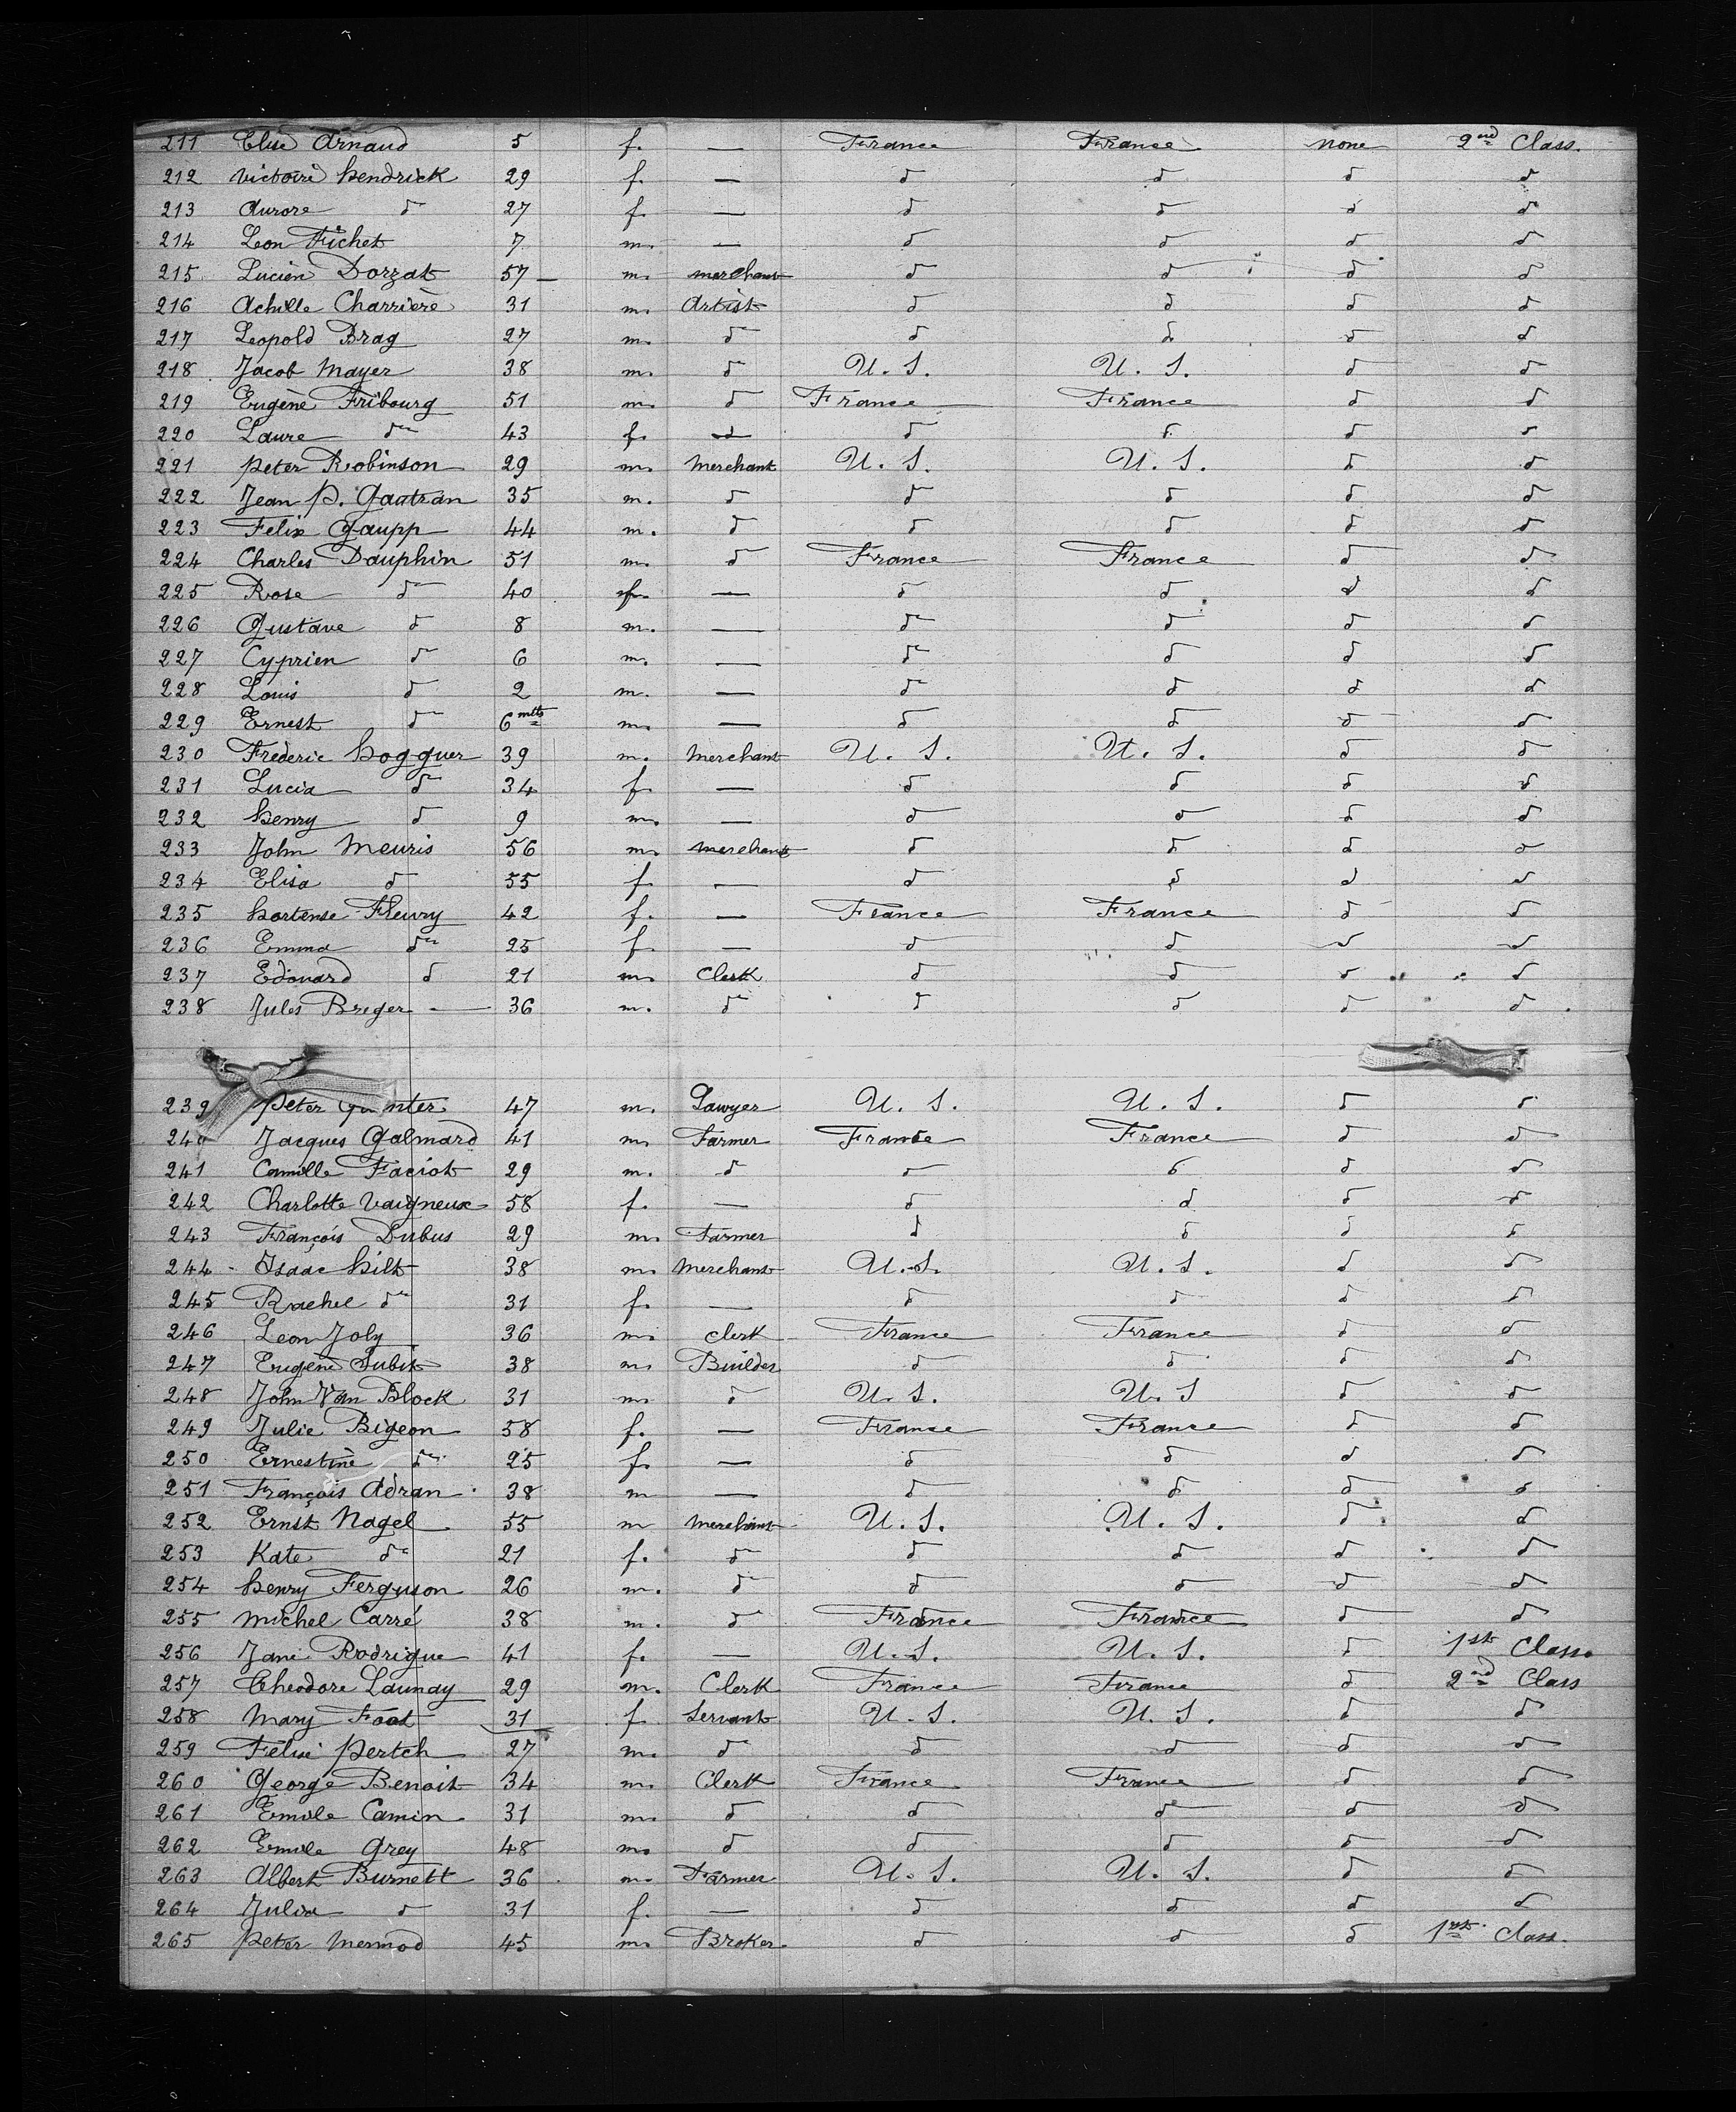 211 Elise Arnaud 5 f. — France France none 2nd Class.
212 Victoire hendrick 29 f. — do do do do
213 Aurore do 27 f. — do do do do
214 Leon Fichet 7 m. — do do do do
215 Lucien Dorzat 57 — m. merchant do do do do
216 Achille Charrière 31 m. Artist do do do do
217 Leopold Brag 27 m. do do do do do
218 Jacob Mayer 38 m. do U. S. U. S. do do
219 Eugène Fribourg 51 m. do France France do do
220 Laure do 43 f. do do do do
221 peter Robinson 29 m. Merchant U. S. U. S. do do
222 Jean P. Gautran 35 m. do do do do do
223 Felix Gaupp 44 m. do do do do do
224 Charles Dauphin 51 m. do France France do do
225 Rose do 40 f. — do do do do
226 Gustave do 8 m. — do do do do
227 Cyprien do 6 m. — do do do do
228 Louis do 2 m. — do do do do
229 Ernest do 6 mths m. — do do do do
230 Frederic hogguer 39 m. Merchant U. S. U. S. do do
231 Lucia do 34 f. — do do do do
232 henry do 9 m. — do do do do
233 John Meuris 56 m. merchant do do do do
234 Elisa do 55 f. — do do do do
235 hortense Fleury 42 f. — France France do do
236 Emma do 25 f. — do do do do
237 Edouard do 21 m. Clerk do do do do
238 Jules Breger — 36 m. do do do do do
239 peter 47 m. Lawyer U. S. U. S. do do
240 Jacques Galmard 41 m. Farmer France France do do
241 Camille Faciot 29 m. do do do do do
242 Charlotte Vaigneux 58 f. — do do do do
243 François Dubus 29 m. Farmer do do do do
244 Isaac hilt 38 m. Merchant U. S. U. S. do do
245 Rachel do 31 f. — do do do do
246 Leon Joly 36 m. clerk France France do do
247 Eugène Subit 38 m. Builder do do do do
248 John Van Block 31 m. do U. S. U. S do do
249 Julie Bigeon 58 f. — France France do do
250 Ernestine do 25 f. — do do do do
251 François Adran 38 m — do do do do
252 Ernst Nagel 55 m merchant U. S. U. S. do do
253 Kate do 21 f. do do do do do
254 henry Ferguson 26 m. do do do do do
255 Michel Carré 38 m. do France France do do
256 Jane Rodrigue 41 f. — U. S. U. S. do 1st Class
257 Theodore Launay 29 m. Clerk France France do 2nd Class
258 Mary Foot 31 f Servant U. S. U. S. do do
259 Felix pertch 27 m. do do do do do
260 George Benoit 34 m. Clerk France France do do
261 Emile Camin 31 m. do do do do do
262 Emile Grey 48 m. do do do do do
263 Albert Burnett 36 m. Farmer U. S. U. S. do do
264 Julia do 31 f. — do do do do
265 peter Mermod 45 m. Broker do do do 1st Class.